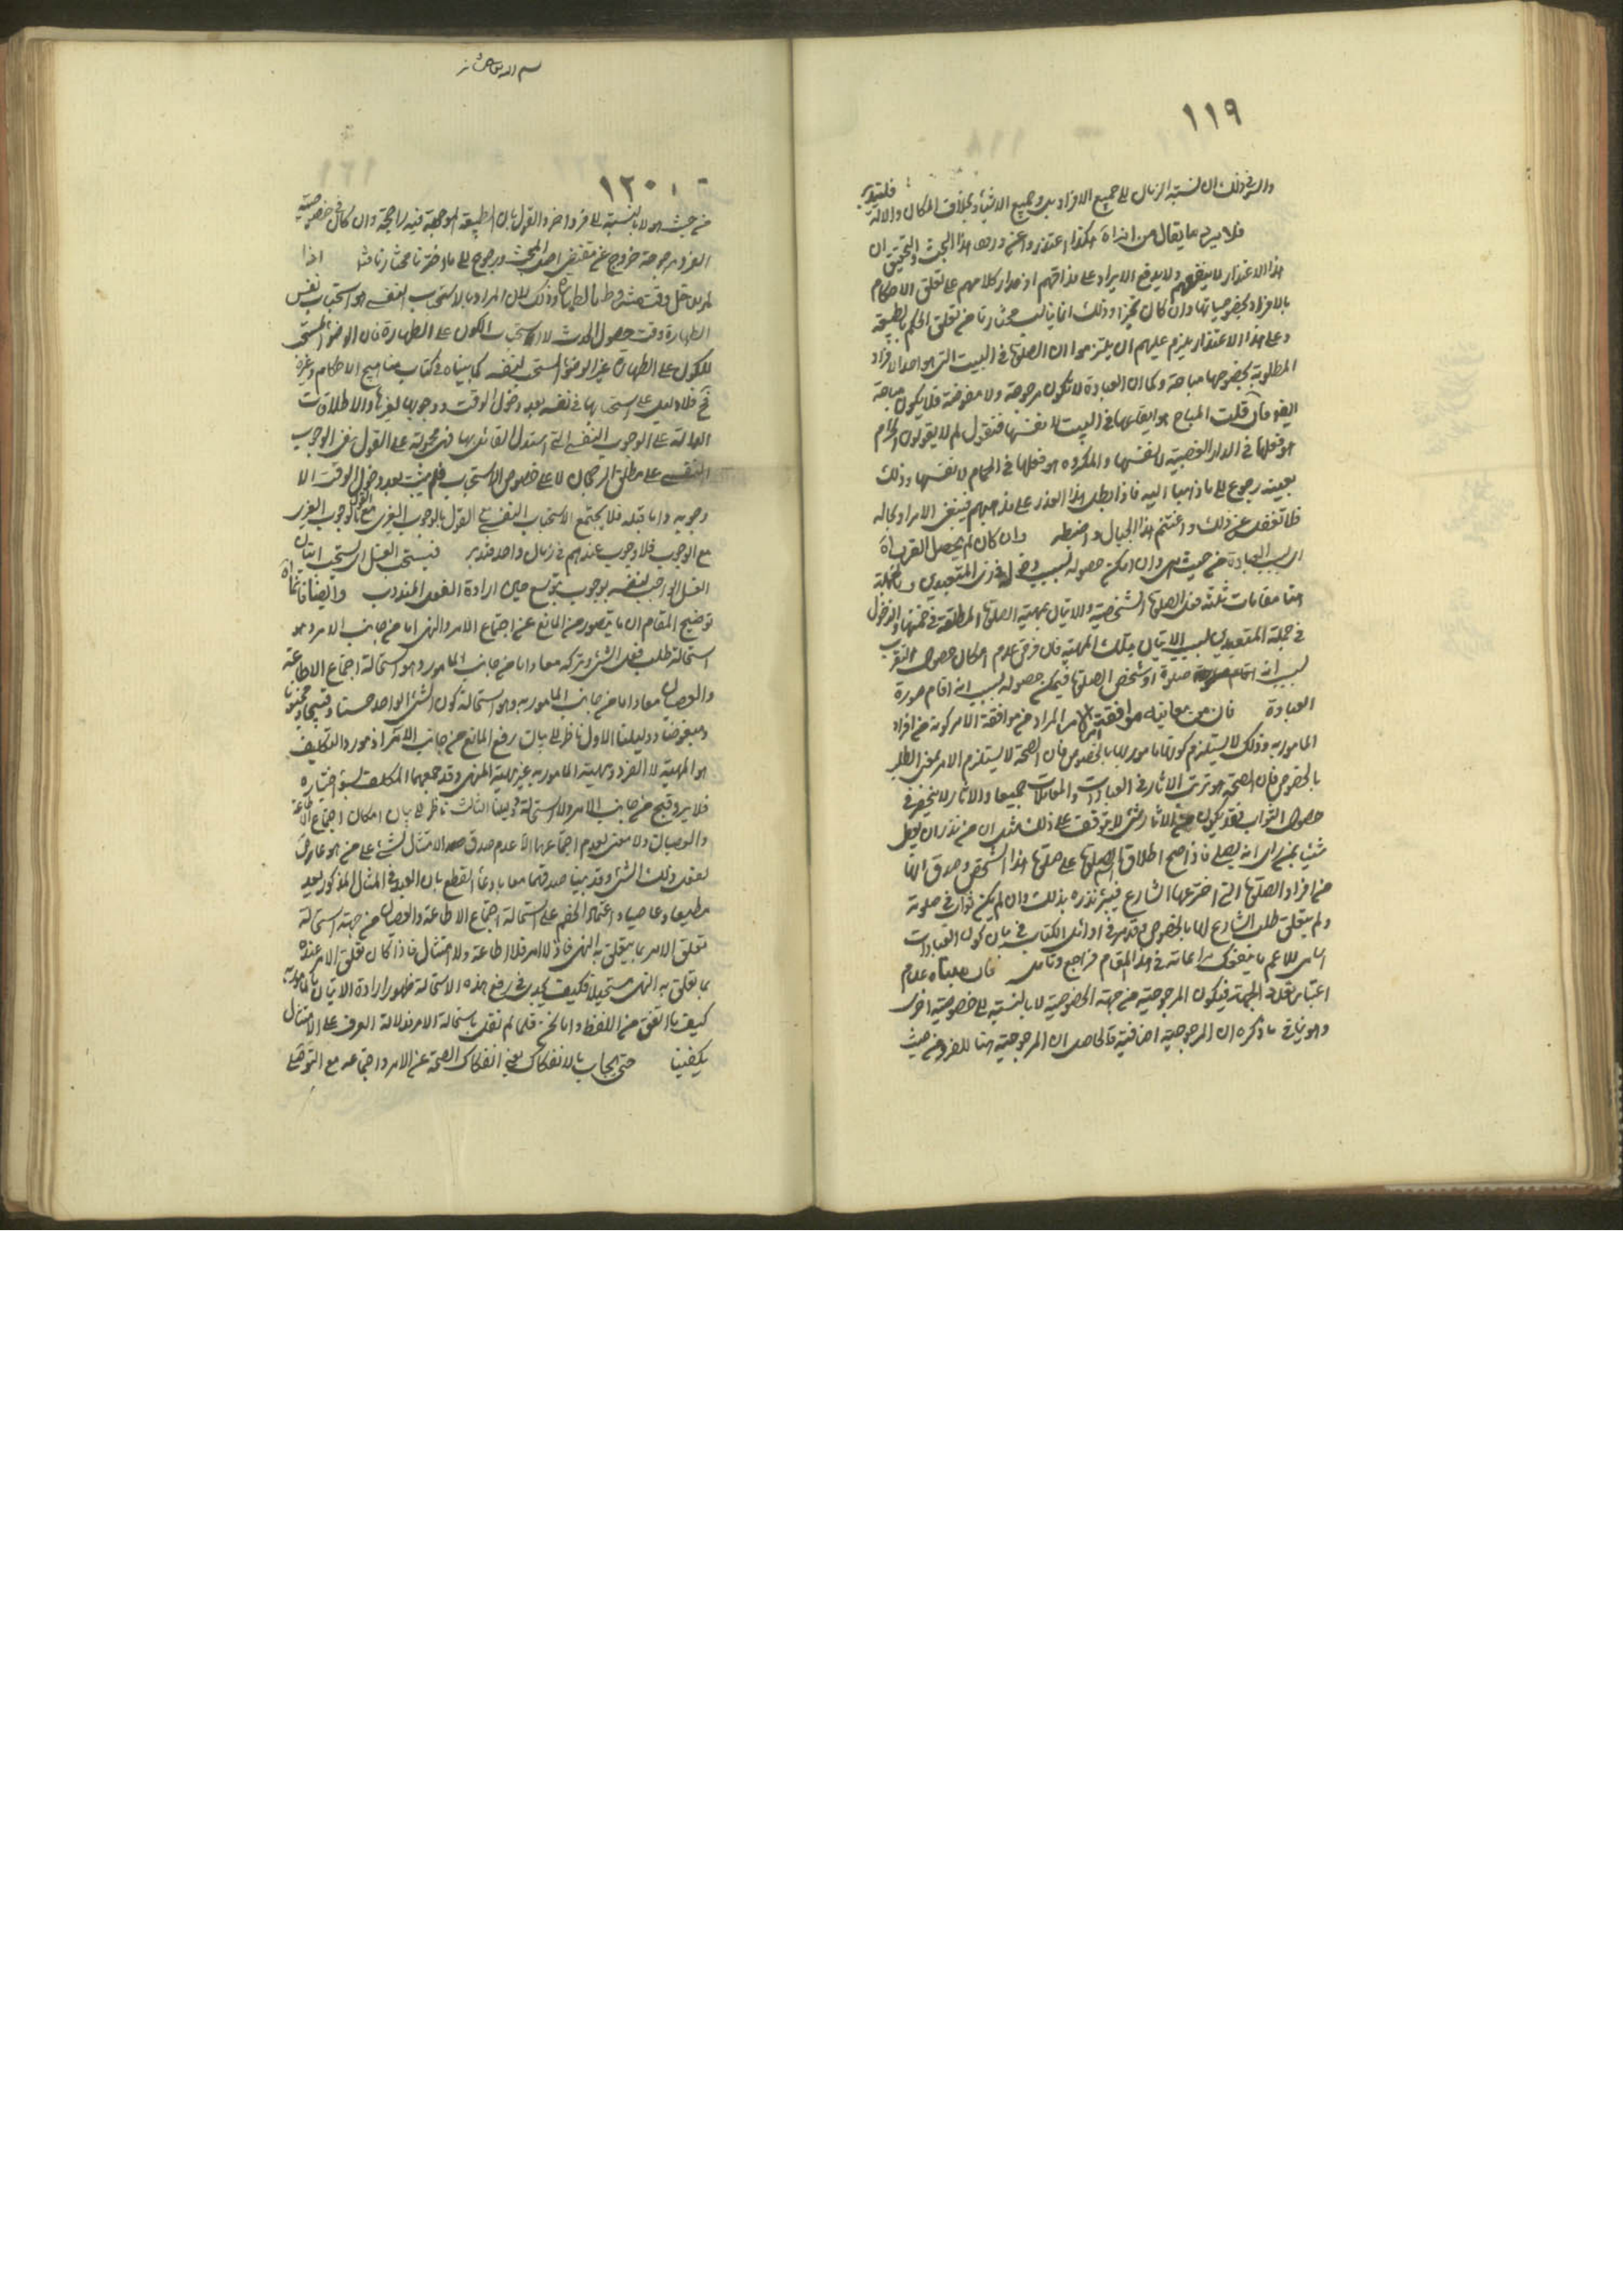 ١١٩
والسر في ذلك ان نسبة الزمان الى جميع الافراد بل وجميع الاشياء بخلاف المكان والالة فليتدبر
فلا يرد ما يقال من اذاه هكذا اعتذروا عن ورود هذا البحث والتحقيق ان
هذا الاعتذار لا ينفعهم ولا يدفع الايراد على مذاقهم اذ مدار كلامهم على تعلق الاحكام
بالافراد بخصوصياتها وان كان تخيرا وذلك انما يناسب مختارنا من تعلق الحكم بالطبيعة
وعلى هذا الاعتذار يلزم عليهم ان يلتزموا ان الصلوة في البيت التي هو احد الافراد
المطلوبة بخصوصها مباحة وكما ان العبادة لا تكون مرجوحة ولا مفروضة فلا يكون مباحة
ايضا فان قلت المباح هو ايقاعها في البيت لا نفسها فنقول لم لا يقولون الحرام
هو فعلها في الدار الغصبية لا نفسها والمكروه هو فعلها في الحمام لا نفسها وذلك
بعينه رجوع الى ما ذهبنا اليه فاذا بطل هذا العذر على مذهبهم فيبقى الايراد بحاله
فلا تغفل عن ذلك واغتنم هذا الخيال واضبطه وان كان لم يحصل القرب اه
العبادة من حيث هي وان امكن حصوله بسبب دخوله في زي المتعبدين وبالجملة
هنا مقامات ثلثة فعل الصلوة الشخصية والاتيان بمهية الصلوة المطلقة في ضمنها والدخول
في جملة المتعبدين بسبب الاتيان بتلك المهية فان فرض عدم امكان حصول التقرب
بسبب انه اقام صلوة او شخص الصلوة فيمكن حصوله بسبب انه اقام صورة
العبادة فان من معانيه موافقة الامر المراد من موافقة الامر كونه من افراد
المامور به وذلك لا يستلزم كونها مامورا بها بالخصوص فان الصحة لا يستلزم الامر بمعنى الطلب
بالخصوص فان الصحة هو ترتب الاثار في العبادات والمعاملات جميعا والاثار لا ينحصر في
حصول الثواب فقد يكون من الاثار شئ لا يتوقف على ذلك مثل ان من نذر ان يعطى
شيئا بمن راى انه يصلي فاذا صح اطلاق اسم الصلوة على صلوة هذا الشخص وصدق انها
من افراد الصلوة التي اخترعها الشارع فيبرء نذره بذلك وان لم يكن ثواب في صلوته
ولم يتعلق طلب الشارع لها بالخصوص وقد مر في اوائل الكتاب في بيان كون العبادات
اسامى للاعم ما ينفعك مراعاته في هذا المقام فراجع وتامل فان مبناه عدم
اعتبار تعدد الجهة فيكون المرجوحية من جهة الخصوصية لا بالنسبة الى خصوصية اخرى
وهو ينافى ما ذكره ان المرجوحية اضافية فالحاصل ان المرجوحية هنا للفرد من حيث
١٢٠
من حيث هو لا بالنسبة الى فرد اخر والقول بان الطبيعة الموجودة فيه راجحة وان كان في خصوصية
الفرد مرجوحة خروج عن مقتضى اصل المبحث ورجوع الى ما اخترنا اذا
لم يدخل وقت مشروط بالطهارة وذلك لان المراد بالاستحباب النفسي هو استحباب نفس
الطهارة وقت حصول الحدث لا استحباب الكون على الطهارة فان الوضوء المستحب
للكون على الطهارة غير الوضوء المستحب لنفسه كما بيناه في كتاب مناهج الاحكام وغيره
فح فلا دليل على استحبابها في نفسه بعد دخول الوقت ووجوبها لغيرها والاطلاقات
الدالة على الوجوب النفسي التي استدل القائل بها فهي محمولة على القول بنفى الوجوب
النفسي على مطلق الرجحان لا على خصوص الاستحباب فلم يثبت بعد دخول الوقت الا
وجوبه واما قبله فلا يجتمع الاستحباب النفسي على القول بالوجوب الغيري مع القول بالوجوب الغيري
مع الوجوب فلا وجوب عندهم في زمان واحد فتدبر فيستحب الغسل اي يستحب اتيان
الغسل الواجب لنفسه بوجوب موسع حين ارادة الفعل المندوب وايضا فانما اه
توضيح المقام ان ما يتصور من المانع عن اجتماع الامر والنهي اما من جانب الامر وهو
استحالة طلب فعل الشئ وتركه معا واما من جانب المامور وهو استحالة اجتماع الاطاعة
والعصيان معا واما من جانب المامور به وهو استحالة كون الشئ الواحد حسنا وقبيحا ومحبوبا
ومبغوضا ودليلنا الاول ناظر الى بيان رفع المانع من جانب الامر اذ مورد التكليف
هو المهية لا الفرد ومهية المامور به غير مهية المنهي وقد جمعهما المكلف بسوء اختياره
فلا يرد قبح من جانب الامر ولا استحالة ودليلنا الثالث ناظر الى بيان امكان اجتماع الاطاعة
والعصيان ولا معنى لعدم اجتماعهما الا عدم صدق الامتثال لشئ على من هو عارف
بفعل ذلك الشئ وقد بينا صدقهما معا بادعاء القطع بان العبد في المثال المذكور يعد
مطيعا وعاصيا واعتماد الخصم على استحالة اجتماع الاطاعة والعصيان من جهة استحالة
تعلق الامر بما يتعلق به النهي فاذ لا امر فلا اطاعة ولا امتثال فاذا كان تعلق الامر عنده
بما تعلق به النهي مستحيلا فكيف يجدي في رفع هذه الاستحالة ظهور ارادة الاتيان بالمامور به
كيف ما اتفق من اللفظ واما نحن فلما لم نقل باستحالة الامر فدلالة العرف على الامتثال
يكفينا حتى يجاب بالانفكاك يعني انفكاك الصحة عن الامر واجتماعه مع